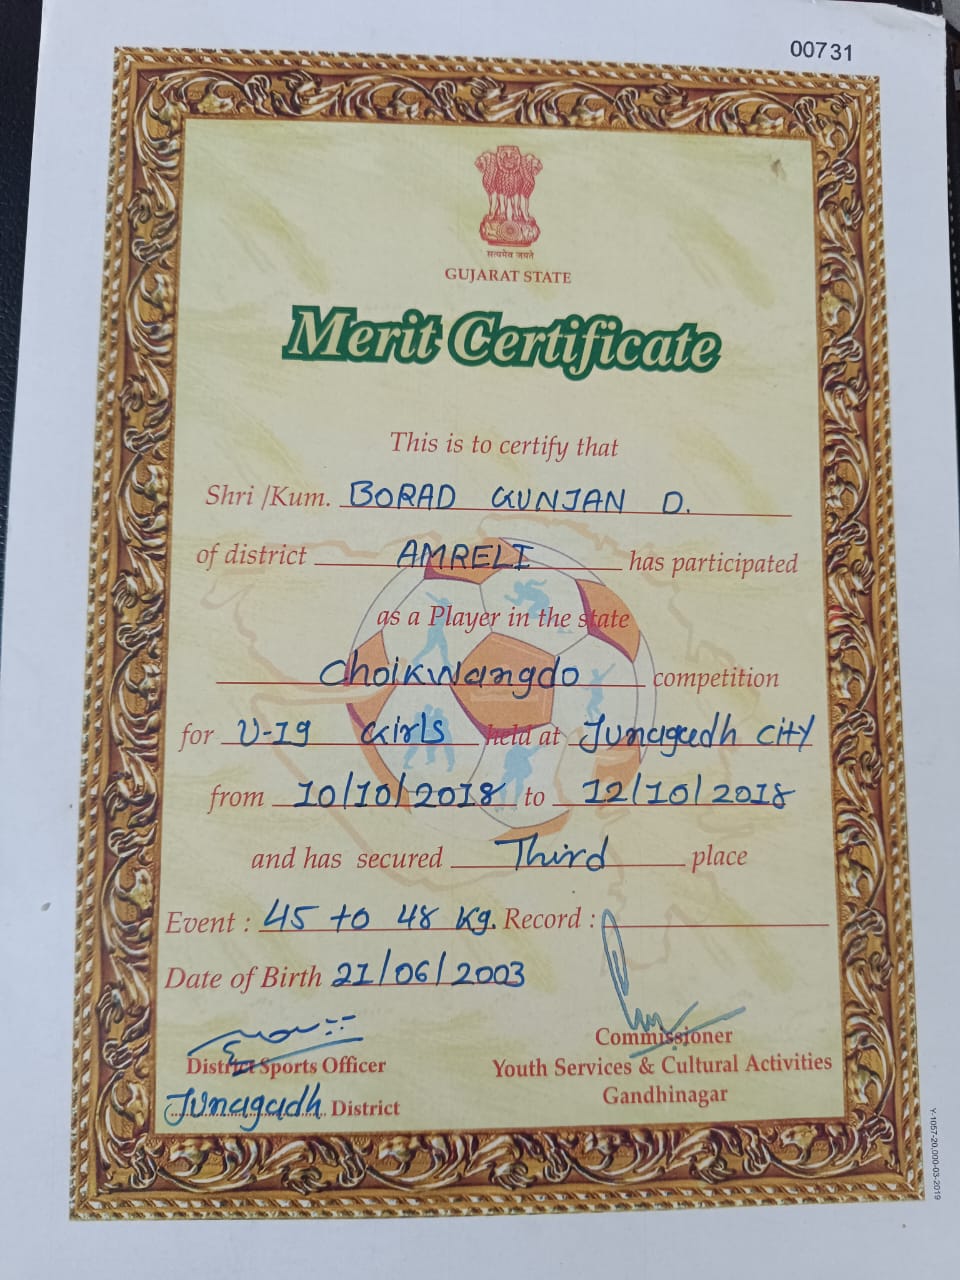 00731
सत्यमेव जयते
GUJARAT STATE
Merit Certificate
This is to certify that
Shri /Kum. BORAD GUNJAN D.
of district AMRELI has participated
as a Player in the state
Choikwangdo competition
for U-19 Girls held at Junagadh City
from 10/10/2018 to 12/10/2018
and has secured Third place
Event : 45 to 48 Kg. Record :
Date of Birth 21/06/2003
District Sports Officer
Junagadh District
Commissioner
Youth Services & Cultural Activities
Gandhinagar
Y-1057-20,000-03-2019